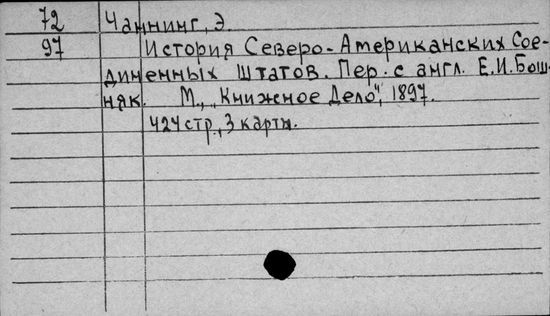 72 Чаннинг, Э.
97 История Северо-Американских Сое-
диненных Штатов. Пер. с англ. Е.И. Бош-
няк. М., „Книжное Дело", 1897.
424 стр., 3 карты.